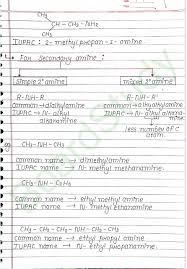 CH₃
CH-CH₂-NH₂
CH₃
IUPAC : 2-methyl propan-1-amine
For Secondary amine :-
Simple 2° amine mixed 2° amine
R-NH-R R-NH-R'
Common → dialkylamine common → alkylalkylamine
IUPAC → N-alkyl alkanamine IUPAC → N-alkyl alkanamine
less number of C atom.
CH₃-NH-CH₃
common name → dimethylamine
IUPAC name → N-methyl methanamine.
CH₃-NH-C₂H₅
common name → ethyl methyl amine
IUPAC name → N-methyl ethanamine
CH₃-CH₂-CH₂-NH-CH₂-CH₃
common name → ethyl propyl amine
IUPAC name → N-ethyl propanamine.